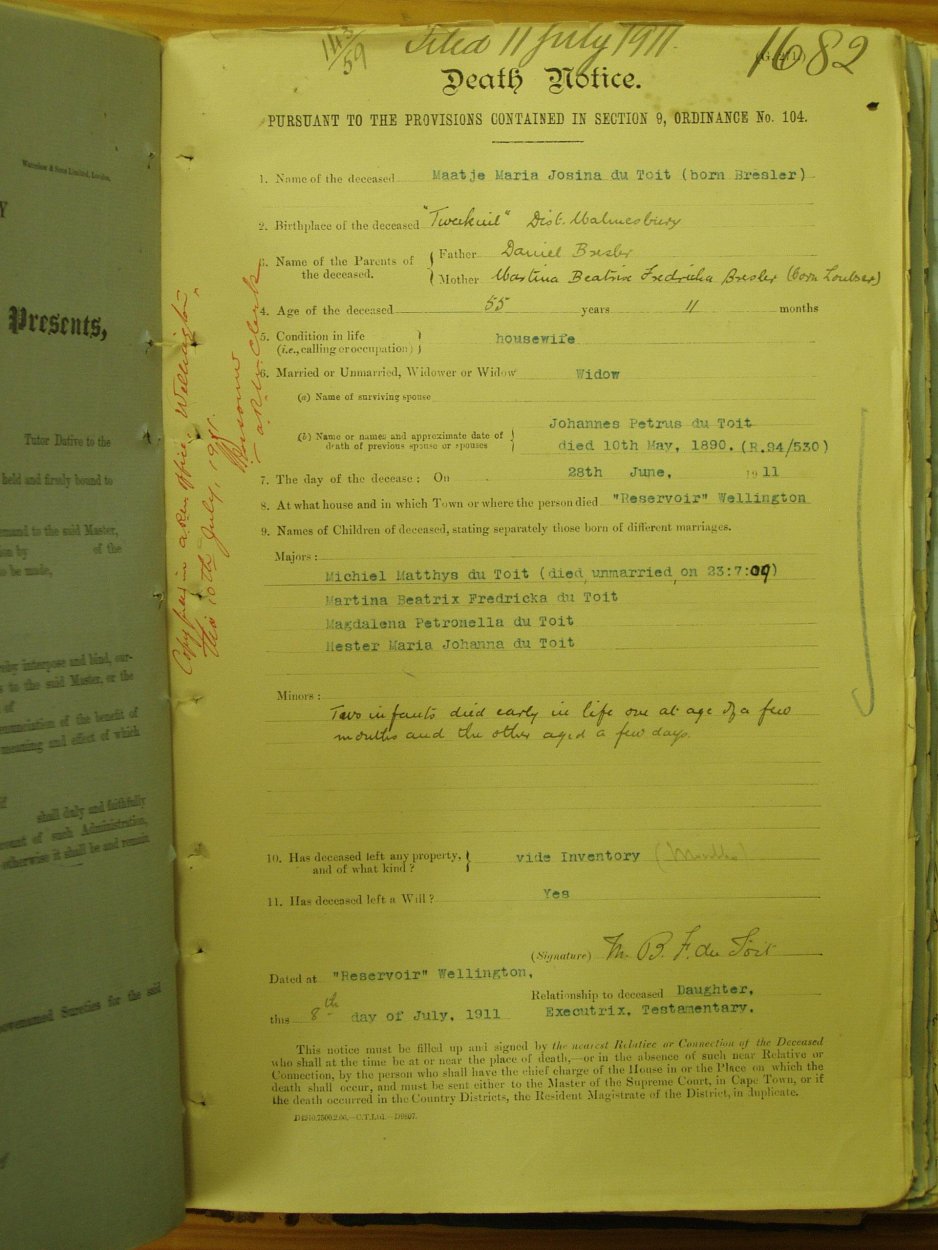 Waterlow & Sons Limited, London.
Y
Presents,
Tutor Dutive to the
held and firmly bound to
emand to the said Master,
ion by of the
to be made,
reby interpose and bind, our-
s to the said Master, or the
of
enunciation of the benefit of
meaning and effect of which
if
shall duly and faithfully
count of such Administration,
otherwise it shall be and remain
bovenamed Sureties for the said
of
113/59
Filed 11 July 1911.
1682
Death Notice.
PURSUANT TO THE PROVISIONS CONTAINED IN SECTION 9, ORDINANCE No. 104.
1. Name of the deceased Maatje Maria Josina du Toit (born Bresler)
2. Birthplace of the deceased "Tweekuil" Dist. Malmesbury
3. Name of the Parents of the deceased.
Father Daniel Bresler
Mother Martina Beatrix Fredricka Bresler (born Loubser)
4. Age of the deceased 55 years 11 months
5. Condition in life
(i.e., calling or occupation) housewife
6. Married or Unmarried, Widower or Widow Widow
(a) Name of surviving spouse
(b) Name or names and approximate date of
death of previous spouse or spouses
Johannes Petrus du Toit
died 10th May, 1890. (R.94/530)
7. The day of the decease: On 28th June, 1911
8. At what house and in which Town or where the person died "Reservoir" Wellington
9. Names of Children of deceased, stating separately those born of different marriages.
Majors:
Michiel Matthys du Toit (died, unmarried, on 23:7:09)
Martina Beatrix Fredricka du Toit
Magdalena Petronella du Toit
Hester Maria Johanna du Toit
Minors:
Two infants died early in life one at age of a few
months and the other aged a few days.
10. Has deceased left any property,
and of what kind? vide Inventory
11. Has deceased left a Will? Yes
(Signature) M. B. F. du Toit
Dated at "Reservoir" Wellington,
Relationship to deceased Daughter,
this 8th day of July, 1911 Executrix, Testamentary.
This notice must be filled up and signed by the nearest Relative or Connection of the Deceased
who shall at the time be at or near the place of death,—or in the absence of such near Relative or
Connection, by the person who shall have the chief charge of the House in or the Place on which the
death shall occur, and must be sent either to the Master of the Supreme Court, in Cape Town, or if
the death occurred in the Country Districts, the Resident Magistrate of the District, in duplicate.
D4310.7500.2.06.—C.T.Ltd.—D9807.
Copy filed in a. R.M. office, Wellington,
this 10th July, 1911.
a. R.M. Clerk